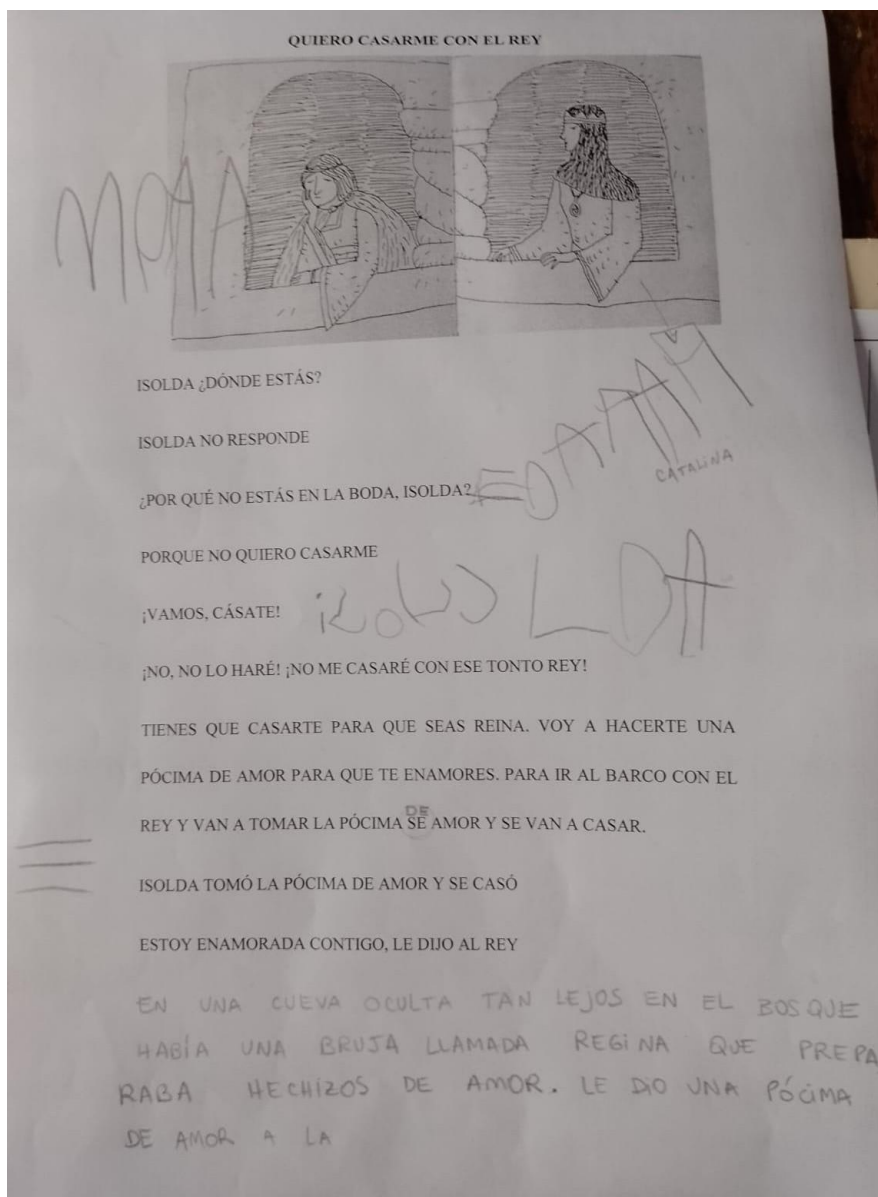 QUIERO CASARME CON EL REY
ISOLDA ¿DÓNDE ESTÁS?
ISOLDA NO RESPONDE
CATALINA
¿POR QUÉ NO ESTÁS EN LA BODA, ISOLDA?
PORQUE NO QUIERO CASARME
¡VAMOS, CÁSATE!
¡NO, NO LO HARÉ! ¡NO ME CASARÉ CON ESE TONTO REY!
TIENES QUE CASARTE PARA QUE SEAS REINA. VOY A HACERTE UNA
PÓCIMA DE AMOR PARA QUE TE ENAMORES. PARA IR AL BARCO CON EL
DE
REY Y VAN A TOMAR LA PÓCIMA SE AMOR Y SE VAN A CASAR.
ISOLDA TOMÓ LA PÓCIMA DE AMOR Y SE CASÓ
ESTOY ENAMORADA CONTIGO, LE DIJO AL REY
EN UNA CUEVA OCULTA TAN LEJOS EN EL BOSQUE
HABÍA UNA BRUJA LLAMADA REGINA QUE PREPA
RABA HECHIZOS DE AMOR. LE DIO UNA PÓCIMA
DE AMOR A LA